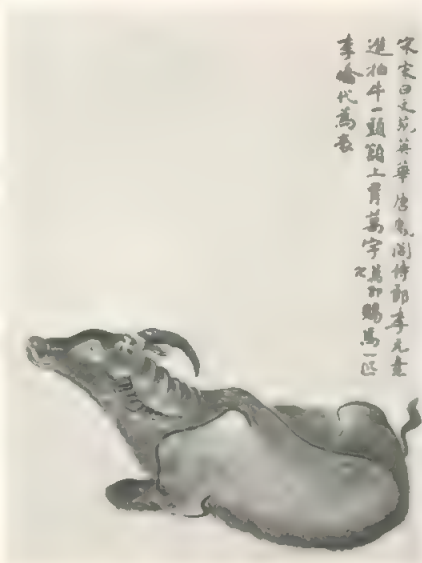 宋宋白文苑英華唐鳳閣侍郎李元素
進牛一頭額上有萬字賜馬一匹
李嶠代為表